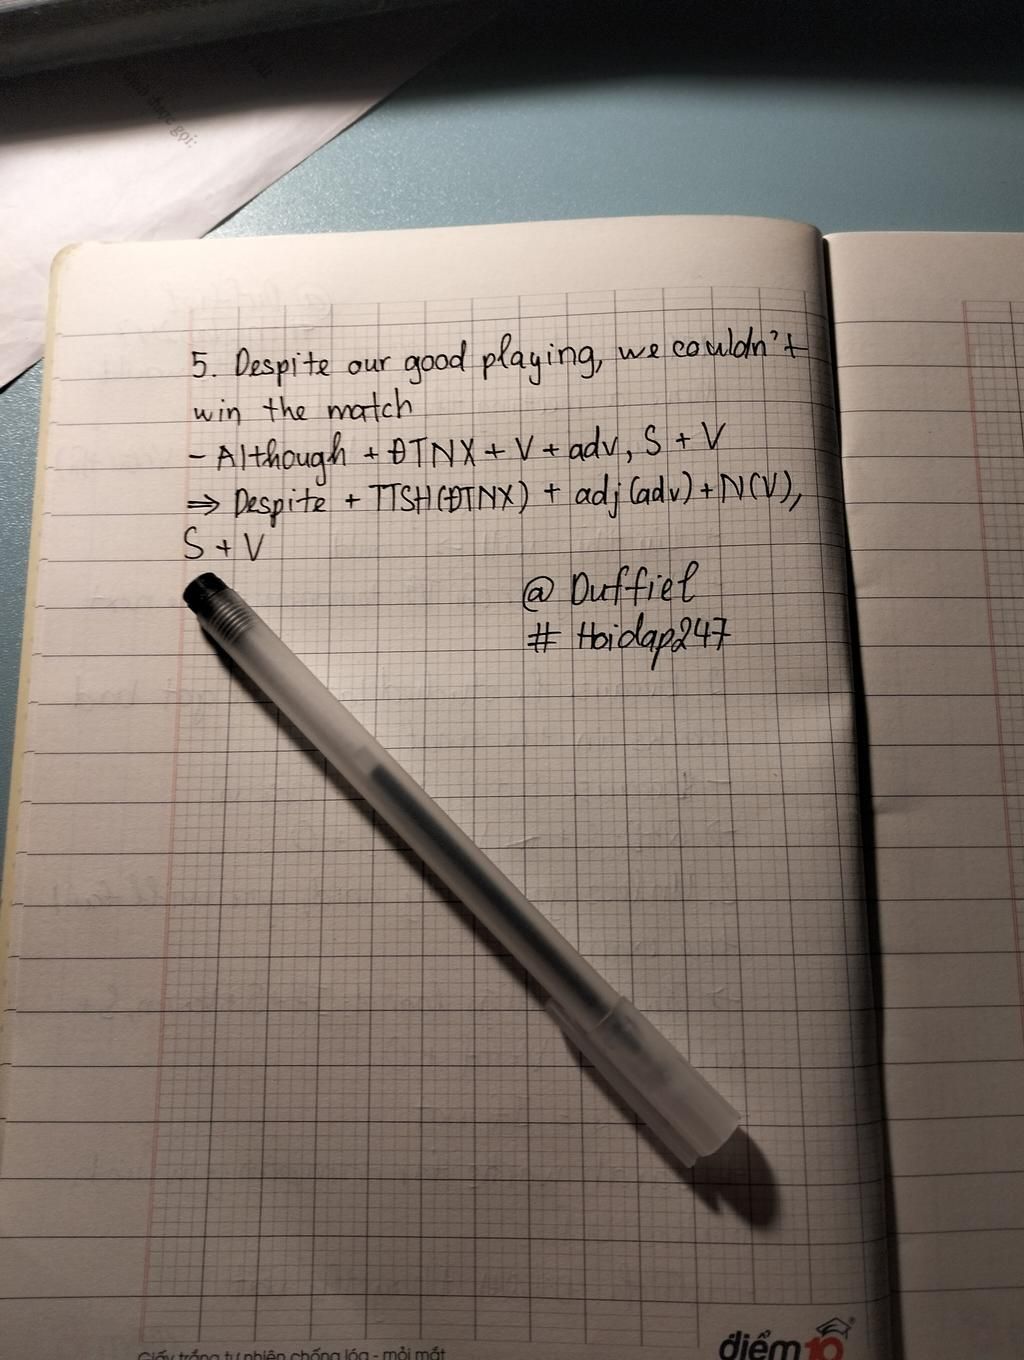 được gọi:
5. Despite our good playing, we couldn't
win the match
- Although + ĐTNX + V + adv, S + V
⇒ Despite + TTSH(ĐTNX) + adj(adv) + N(V),
S + V
@ Duffiel
# Hoidap247
Giấy trắng tự nhiên chống lóa - mỏi mắt
điểm 10